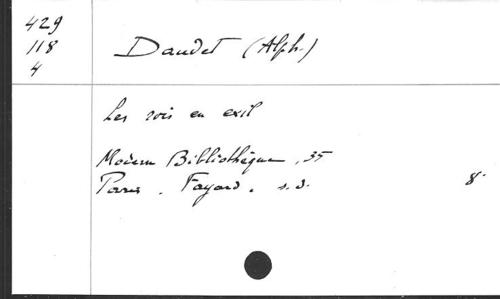 429
118
4
Daudet (Alph.)
Les rois en exil
Modern Bibliothèque, 35
Paris. Fayard. s.d. 8°